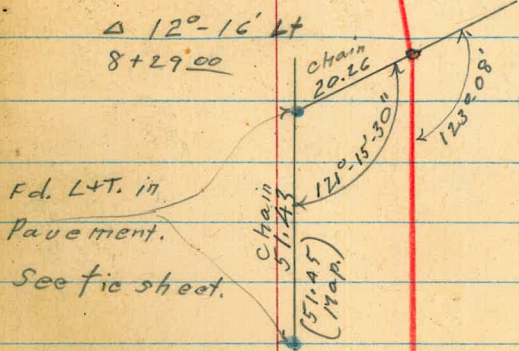 Δ 12°-16' Lt
8+29.00
chain
20.26
121°-15'-30"
123°-08'
Fd. L+T. in
Pavement.
See tie sheet.
chain
51.43
(51.45
Map.)